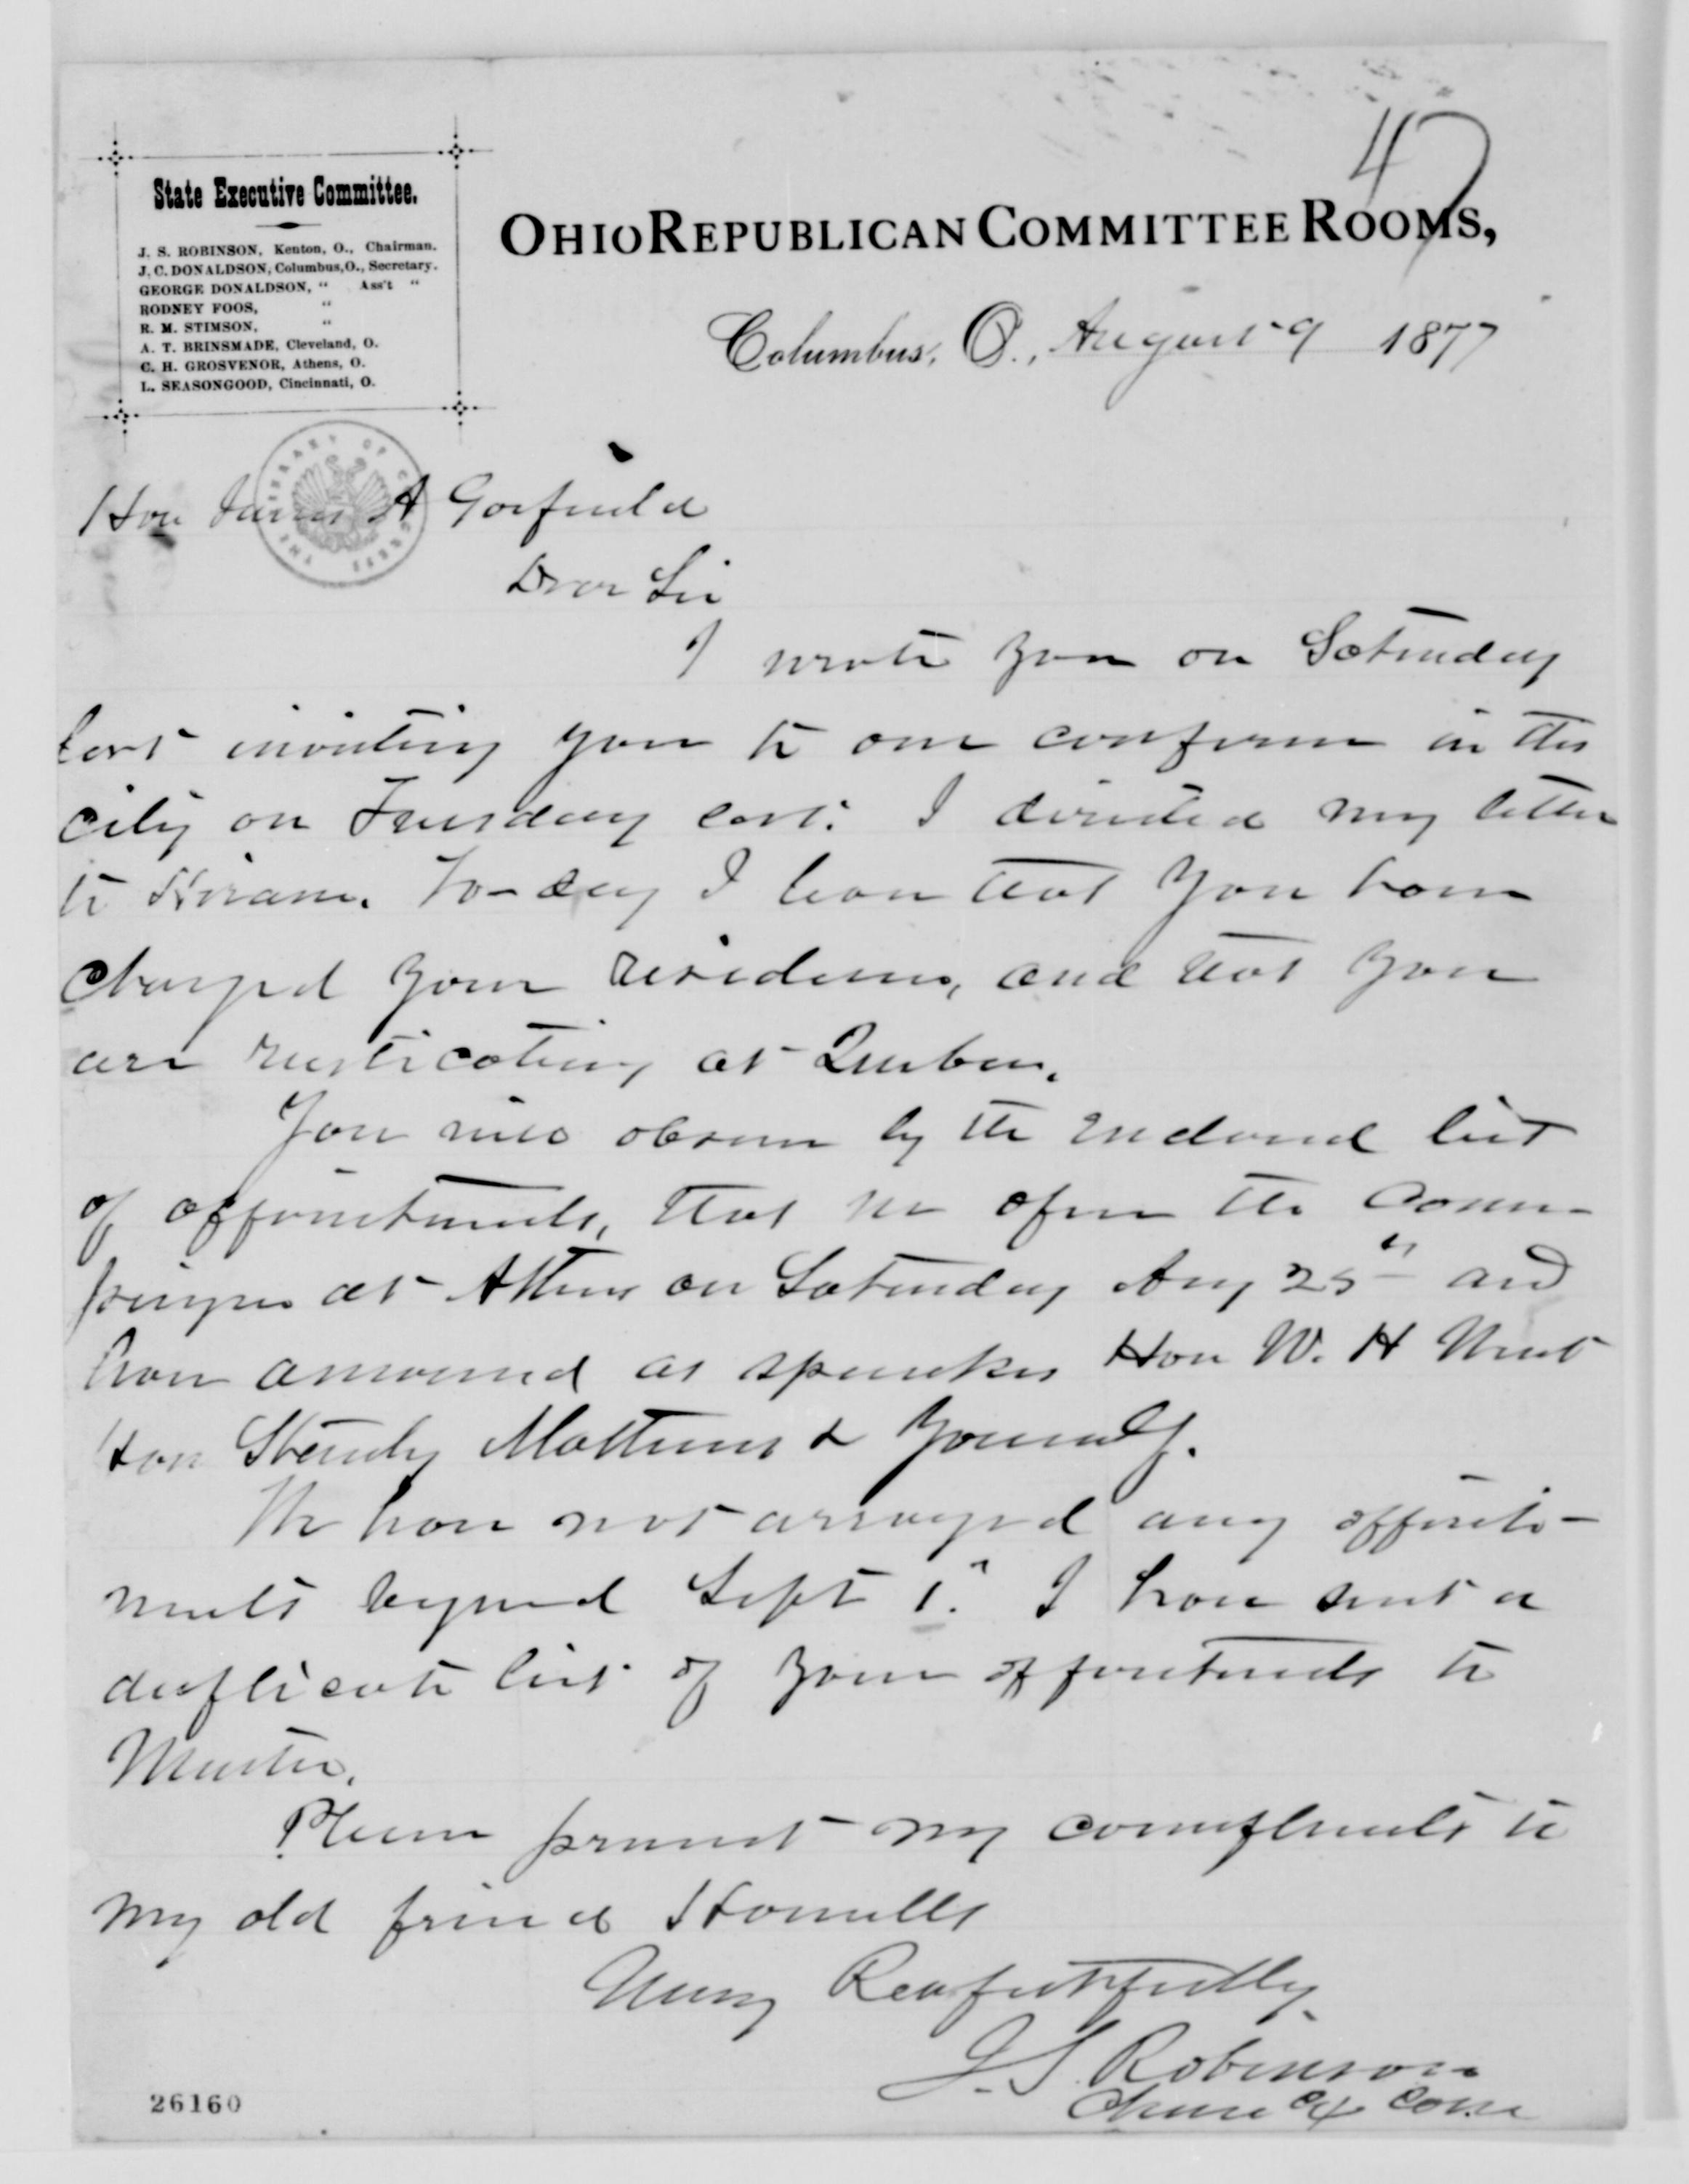 47
State Executive Committee.
J. S. ROBINSON, Kenton, O., Chairman.
J. C. DONALDSON, Columbus, O., Secretary.
GEORGE DONALDSON, " Ass't "
RODNEY FOOS, "
R. M. STIMSON, "
A. T. BRINSMADE, Cleveland, O.
C. H. GROSVENOR, Athens, O.
L. SEASONGOOD, Cincinnati, O.
OHIO REPUBLICAN COMMITTEE ROOMS,
Columbus, O., August 9 1877
THE LIBRARY OF CONGRESS
Hon James A Garfield
Dear Sir
I wrote you on Saturday
last inviting you to our conference in this
city on Tuesday last. I directed my letter
to Hiram. To-day I learn that you have
changed your residence, and that you
are rusticating at
You will observe by the enclosed list
of appointments, that we open the Cam-
paign at Athens on Saturday Aug 25th and
have announced as speakers Hon W. H West
Hon Stanley Matthews & yourself.
We have not arranged any appoint-
ments beyond Sept 1st. I have sent a
duplicate list of your appointments to
Mentor.
Please present my compliments to
my old friend
Very Respectfully
J. S. Robinson
Chm Ex Com
26160